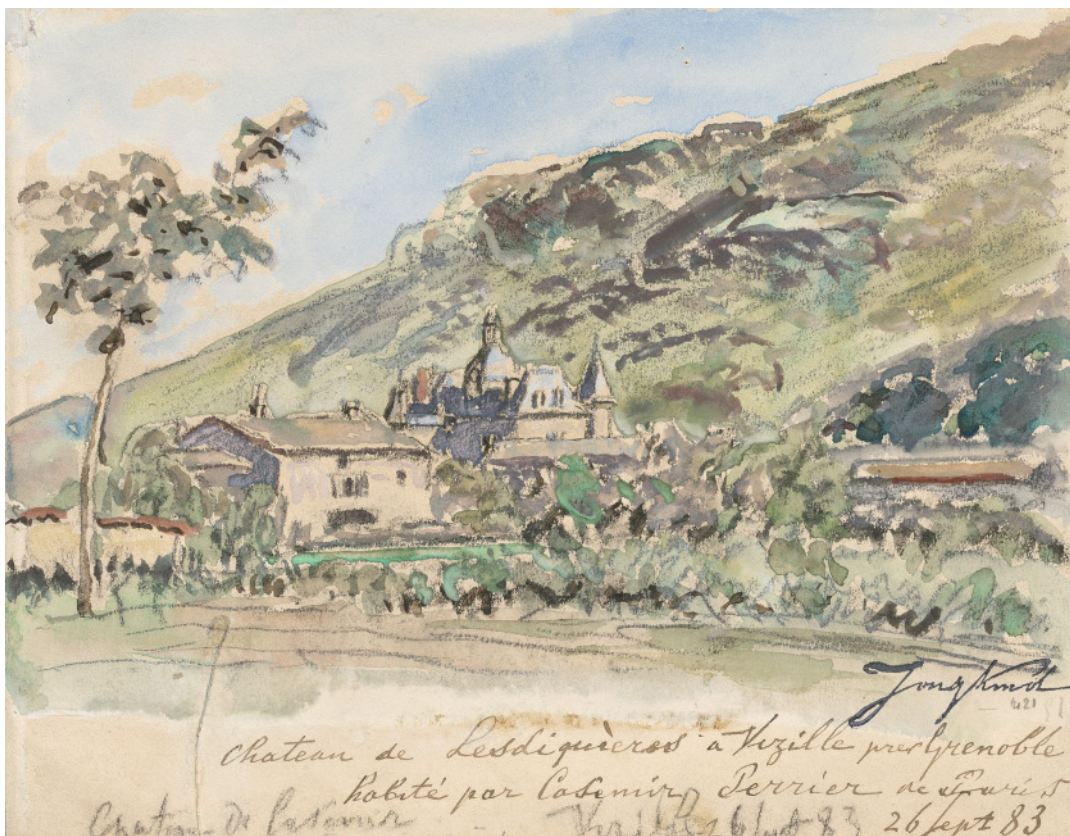 Jongkind
421
Chateau de Lesdiquieres a Vizille pres Grenoble
habité par Casimir Perrier de Paris
26 sept 83
Chateau de Casimir Vizille 26 sept 83